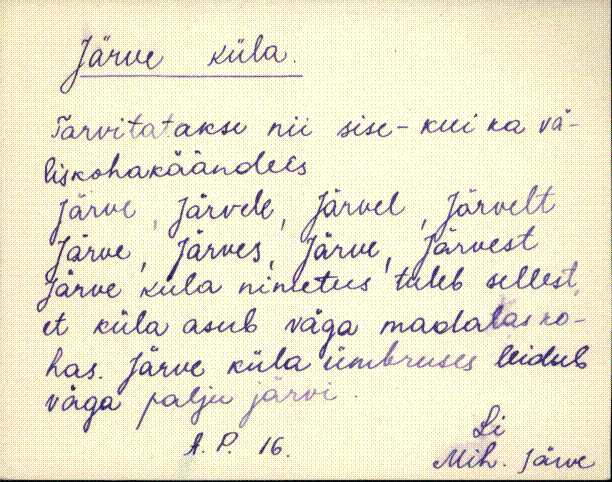 Järve küla.
Tarvitatakse nii sise- kui ka vä-
liskohakäändees
Järve, Järvele, Järvel, Järvelt
Järve, Järves, Järve, Järvest
Järve küla nimetus tuleb sellest,
et küla asub väga madalas ko-
has. Järve küla ümbruses leidub
väga palju järvi.
A. P. 16.
Li
Mih. Järve